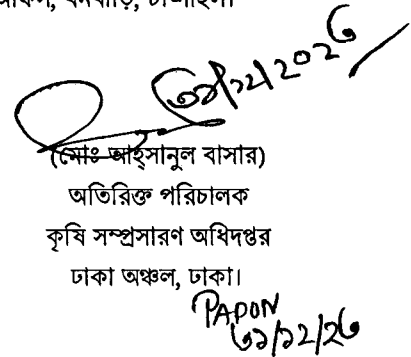 ৩১/১২/২০২৩
(মোঃ আহ্সানুল বাসার)
অতিরিক্ত পরিচালক
কৃষি সম্প্রসারণ অধিদপ্তর
ঢাকা অঞ্চল, ঢাকা।
PAPON
৩১/১২/২৩